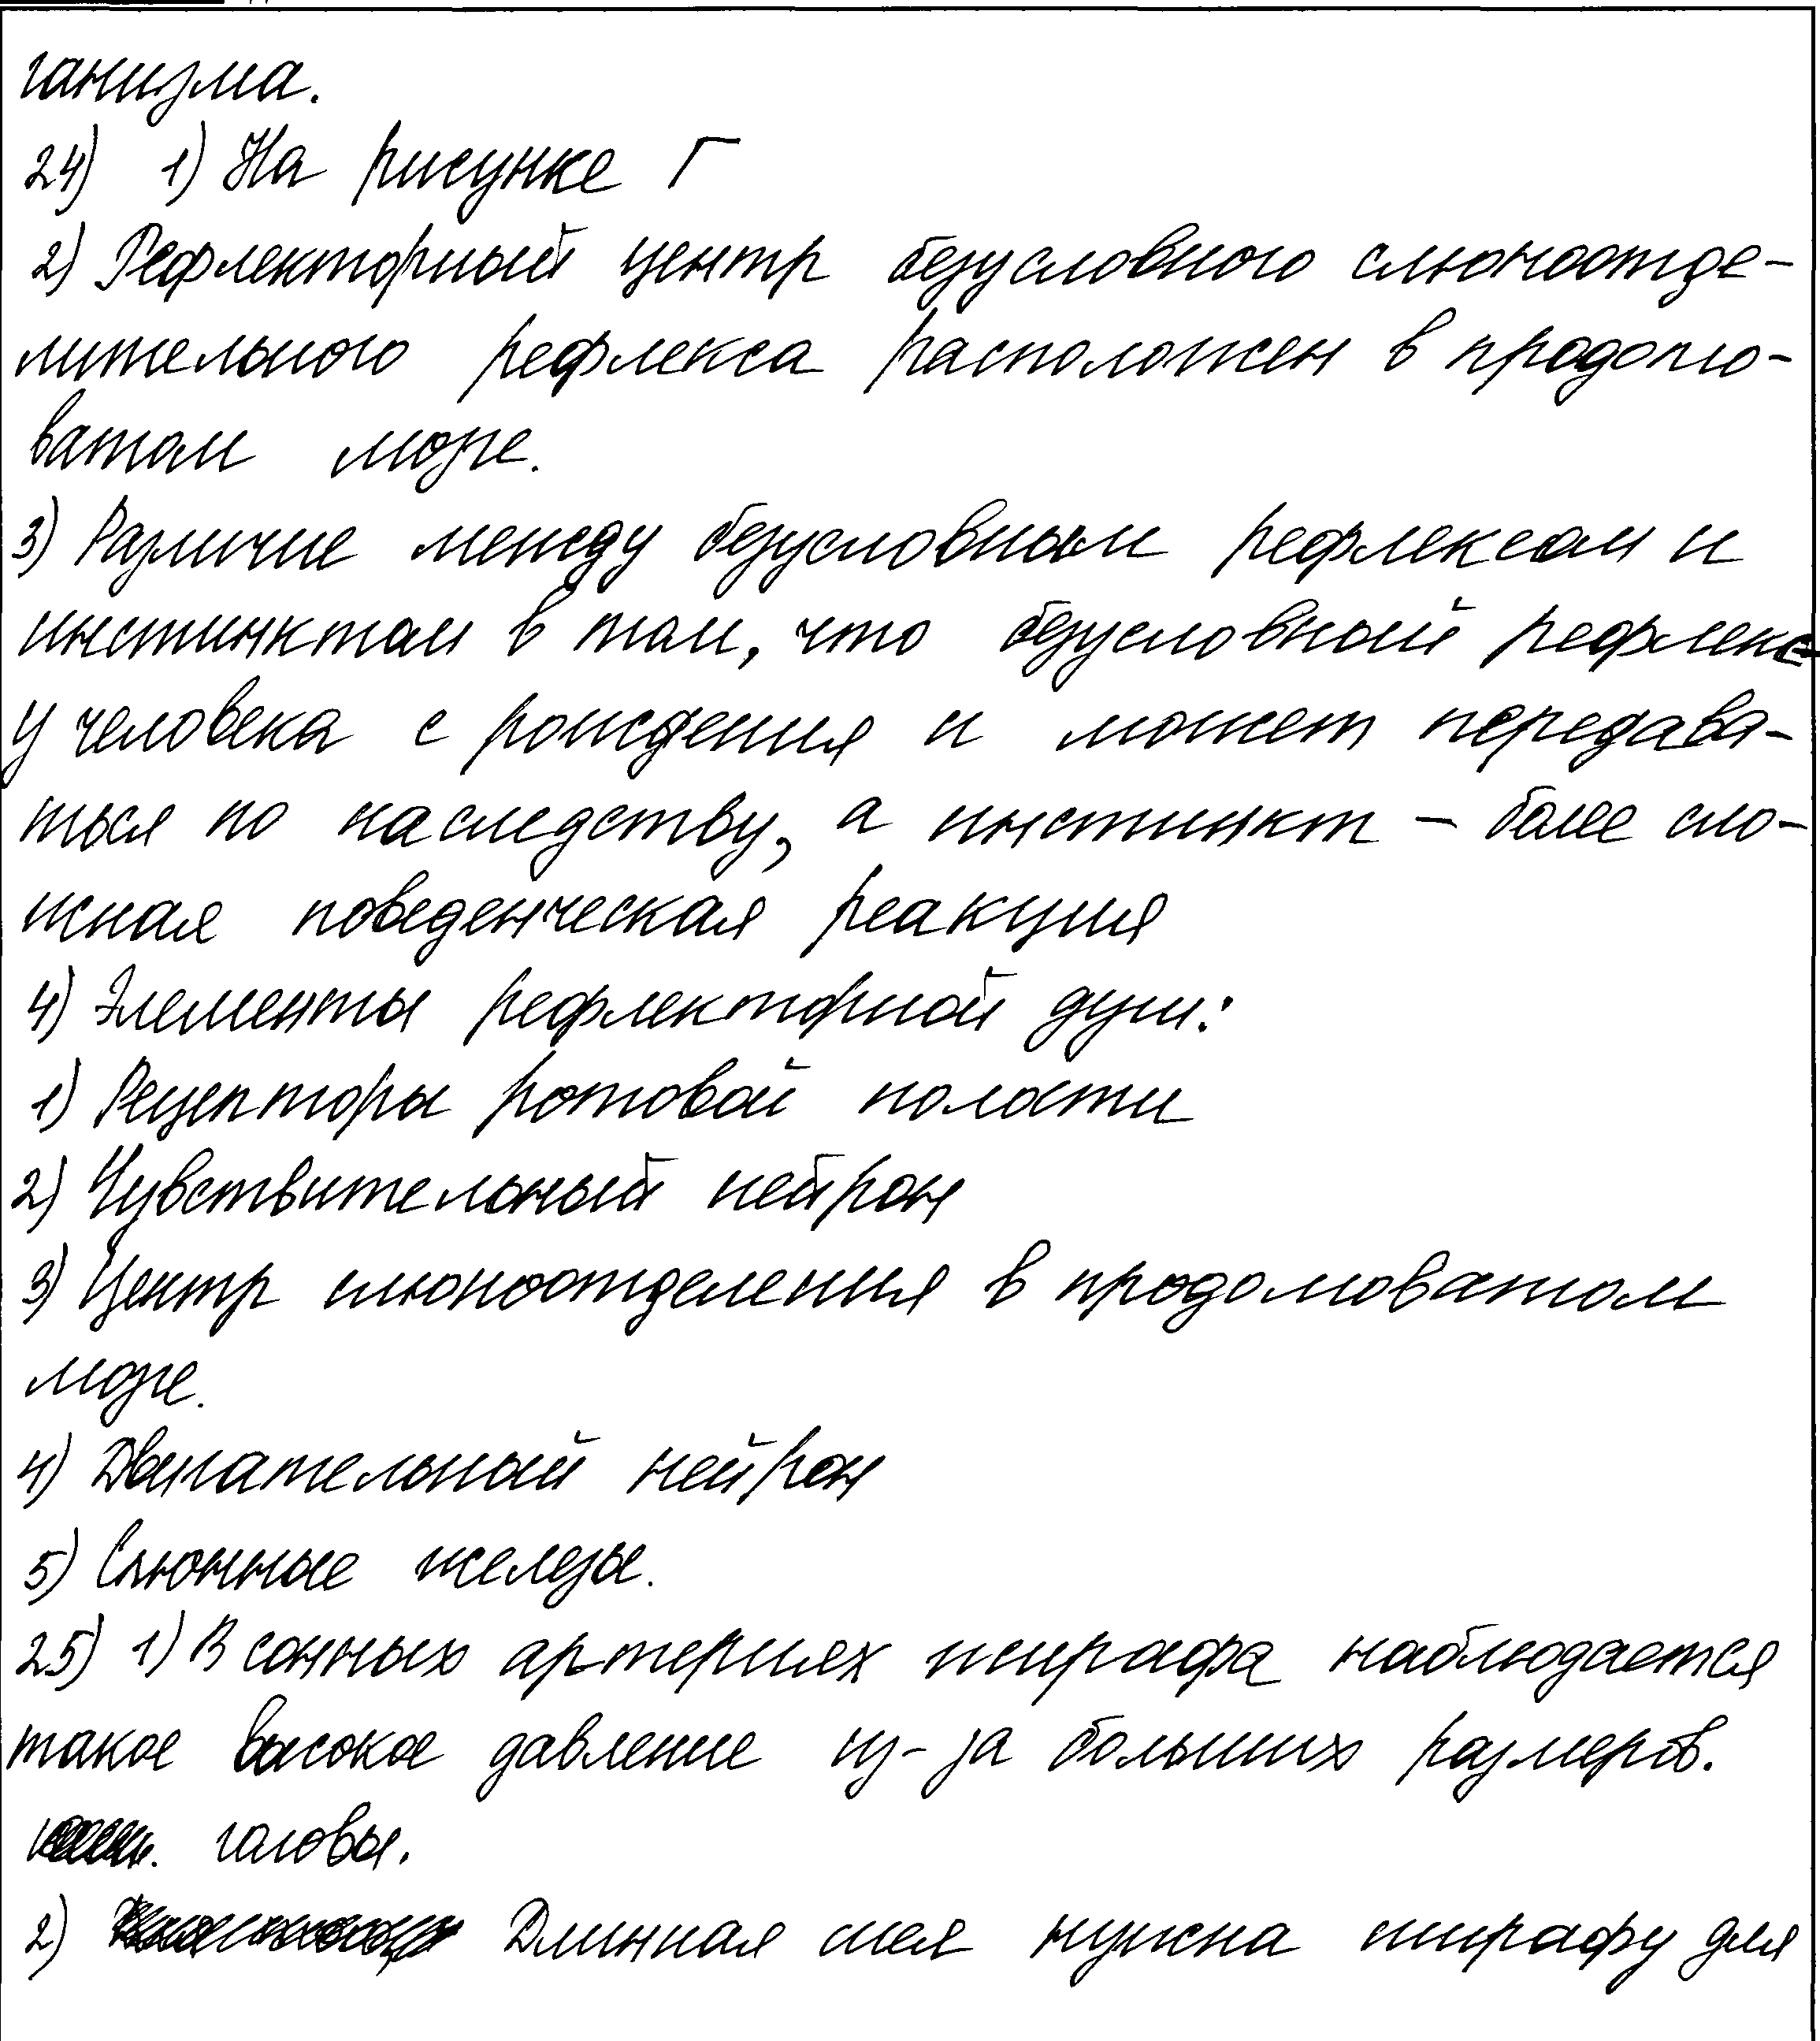 ганизма.
24) 1) На рисунке Г
2) Рефлекторный центр безусловного слюноотде-
лительного рефлекса расположен в продолго-
ватом мозге.
3) Различие между безусловным рефлексом и
инстинктом в том, что безусловный рефлекс
у человека с рождения и может передава-
ться по наследству, а инстинкт - более сло-
жная поведенческая реакция
4) Элементы рефлекторной дуги:
1) Рецепторы ротовой полости
2) Чувствительный нейрон
3) Центр слюноотделения в продолговатом
мозге.
4) Двигательный нейрон
5) Слюнные железы.
25) 1) В сонных артериях жирафа наблюдается
такое высокое давление из-за больших размеров.
головы.
2) Длинная шея нужна жирафу для